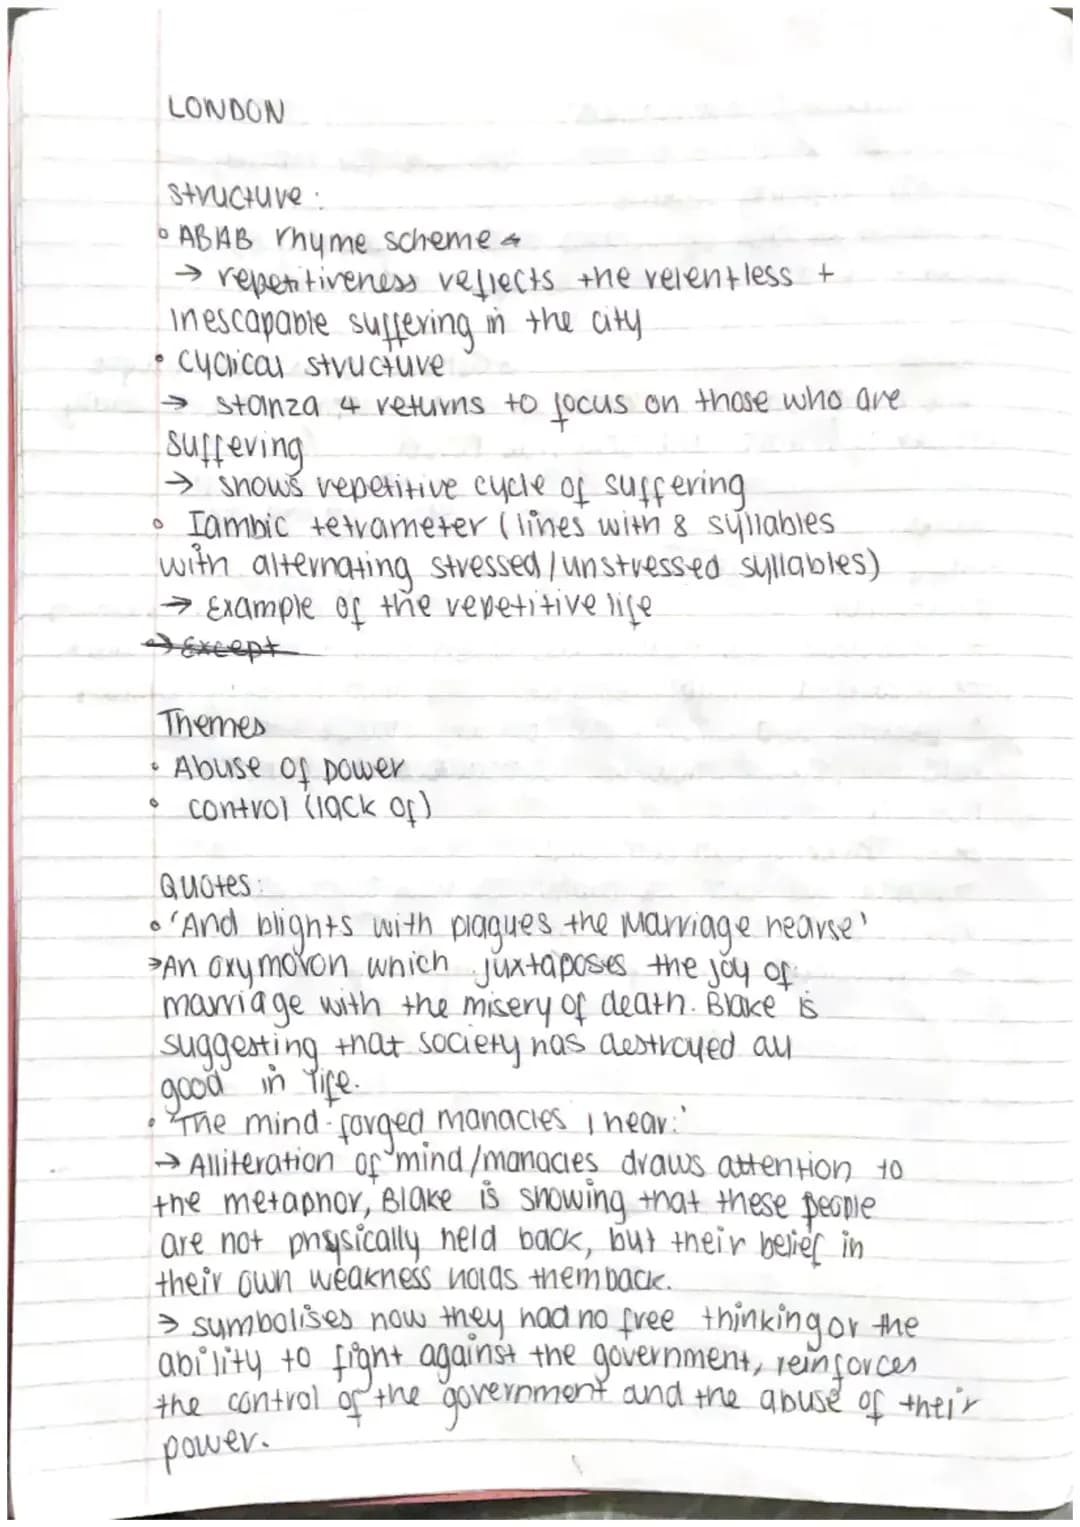 LONDON
structure:
• ABAB rhyme scheme
→ repetitiveness reflects the relentless +
inescapable suffering in the city
• cyclical structure
→ stanza 4 returns to focus on those who are
suffering
→ shows repetitive cycle of suffering
• Iambic tetrameter (lines with 8 syllables
with alternating stressed/unstressed syllables)
→ Example of the repetitive life
→ Except
Themes
• Abuse of power
• control (lack of)
Quotes:
• 'And blights with plagues the Marriage hearse'
→An oxymoron which juxtaposes the joy of
marriage with the misery of death. Blake is
suggesting that society has destroyed all
good in life.
• 'The mind-forged manacles I hear:'
→ Alliteration of mind/manacles draws attention to
the metaphor, Blake is showing that these people
are not physically held back, but their belief in
their own weakness holds them back.
→ symbolises how they had no free thinking or the
ability to fight against the government, reinforces
the control of the government and the abuse of their
power.